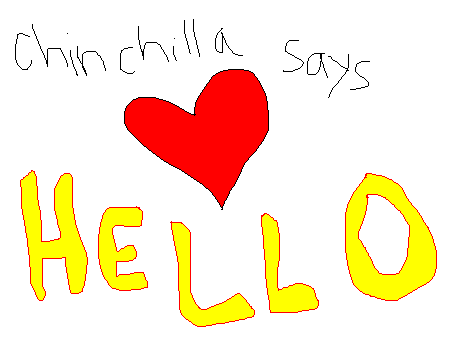 chinchilla says
HELLO